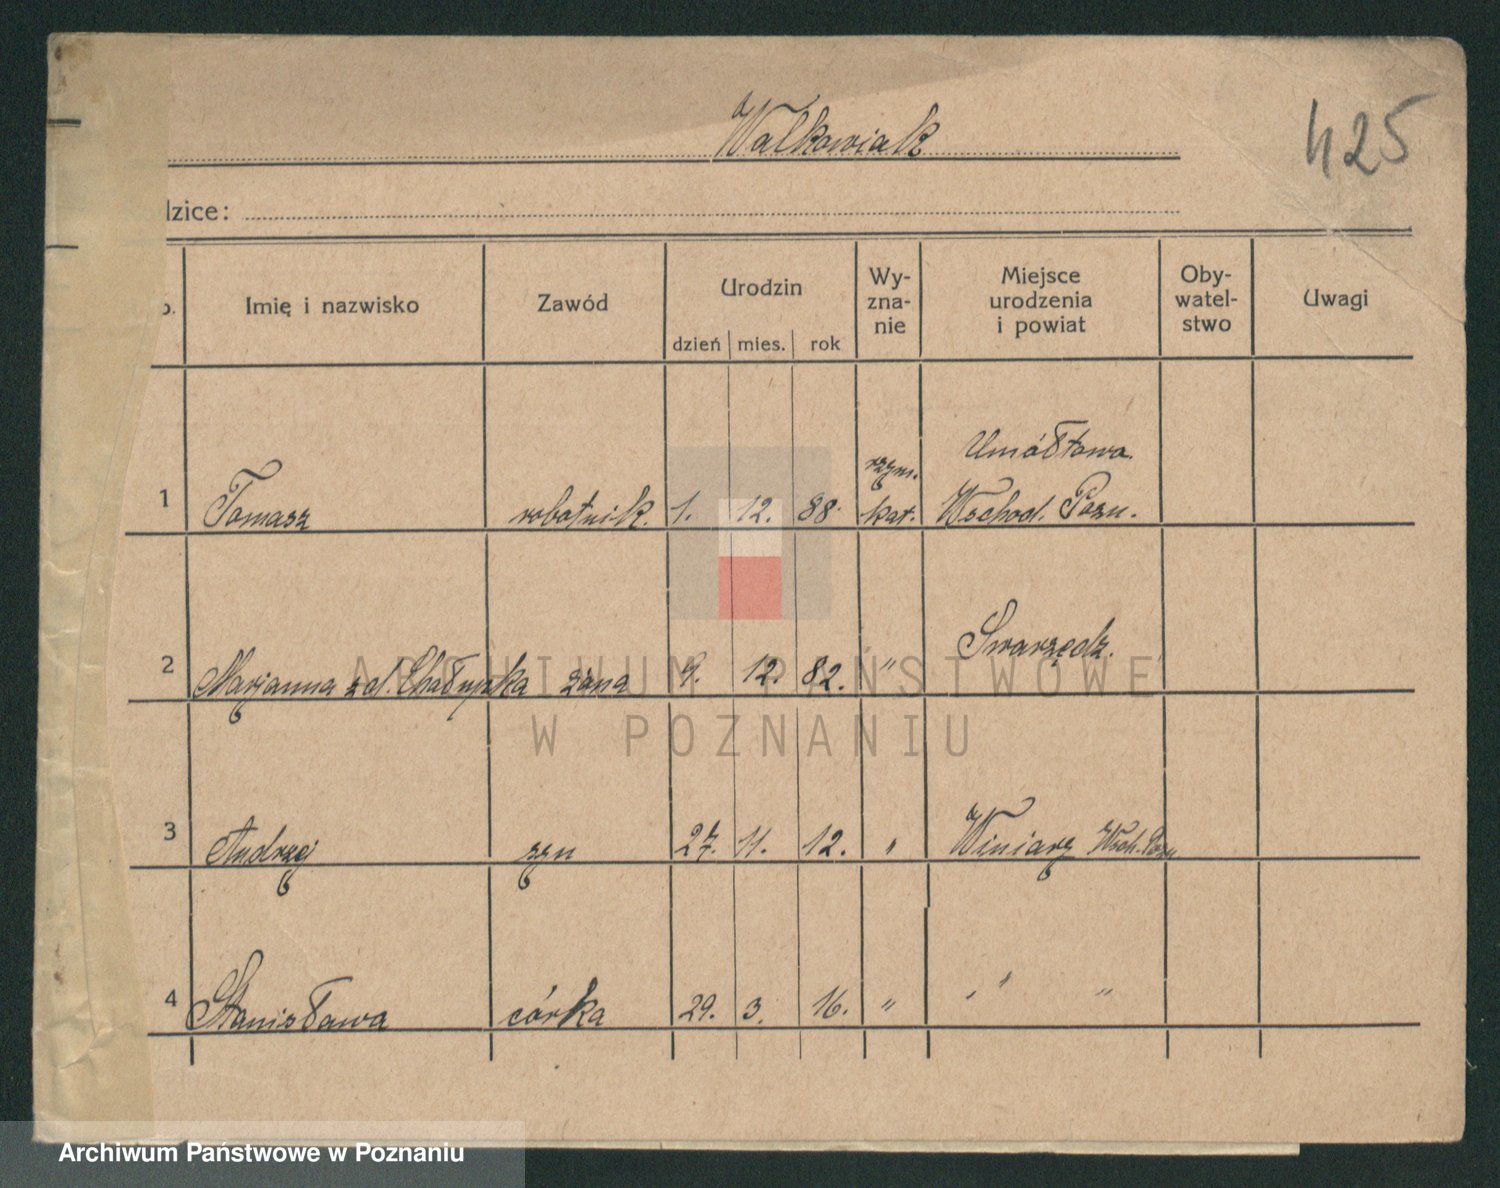 Walkowiak
425
dzice:
Imię i nazwisko
Zawód
Urodzin
dzień mies. rok
Wy-
zna-
nie
Miejsce
urodzenia
i powiat
Oby-
watel-
stwo
Uwagi
1 Tomasz robotnik. 1. 12. 88 rzym. kat. Umółtowa Wschod. Pozn.
2 Marjanna zd. Chałupka żona 9. 12. 82. " Swarzędz.
3 Andrzej syn 27. 11. 12. " Winiary Wsch. Pozn
4 Stanisława córka 29. 3. 16. " " " "
ARCHIWUM PAŃSTWOWE
W POZNANIU
Archiwum Państwowe w Poznaniu